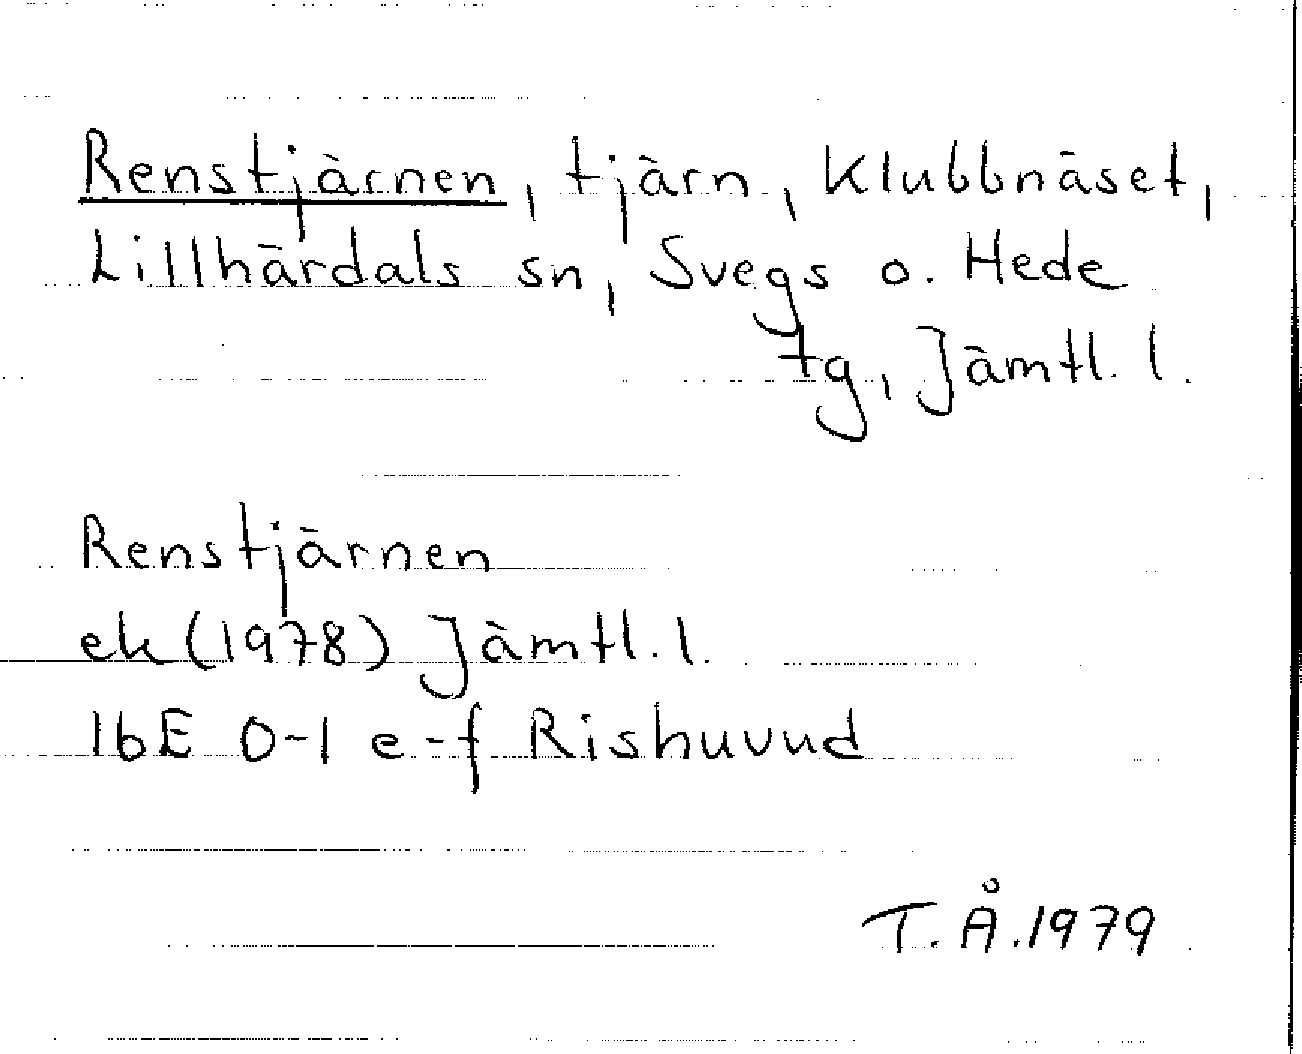 Renstjärnen, tjärn, Klubbnäset,
Lillhärdals sn, Svegs o. Hede
tg, Jämtl. l.
Renstjärnen
ek (1978) Jämtl. l.
16E 0-1 e-f Rishuvud
T.Å.1979